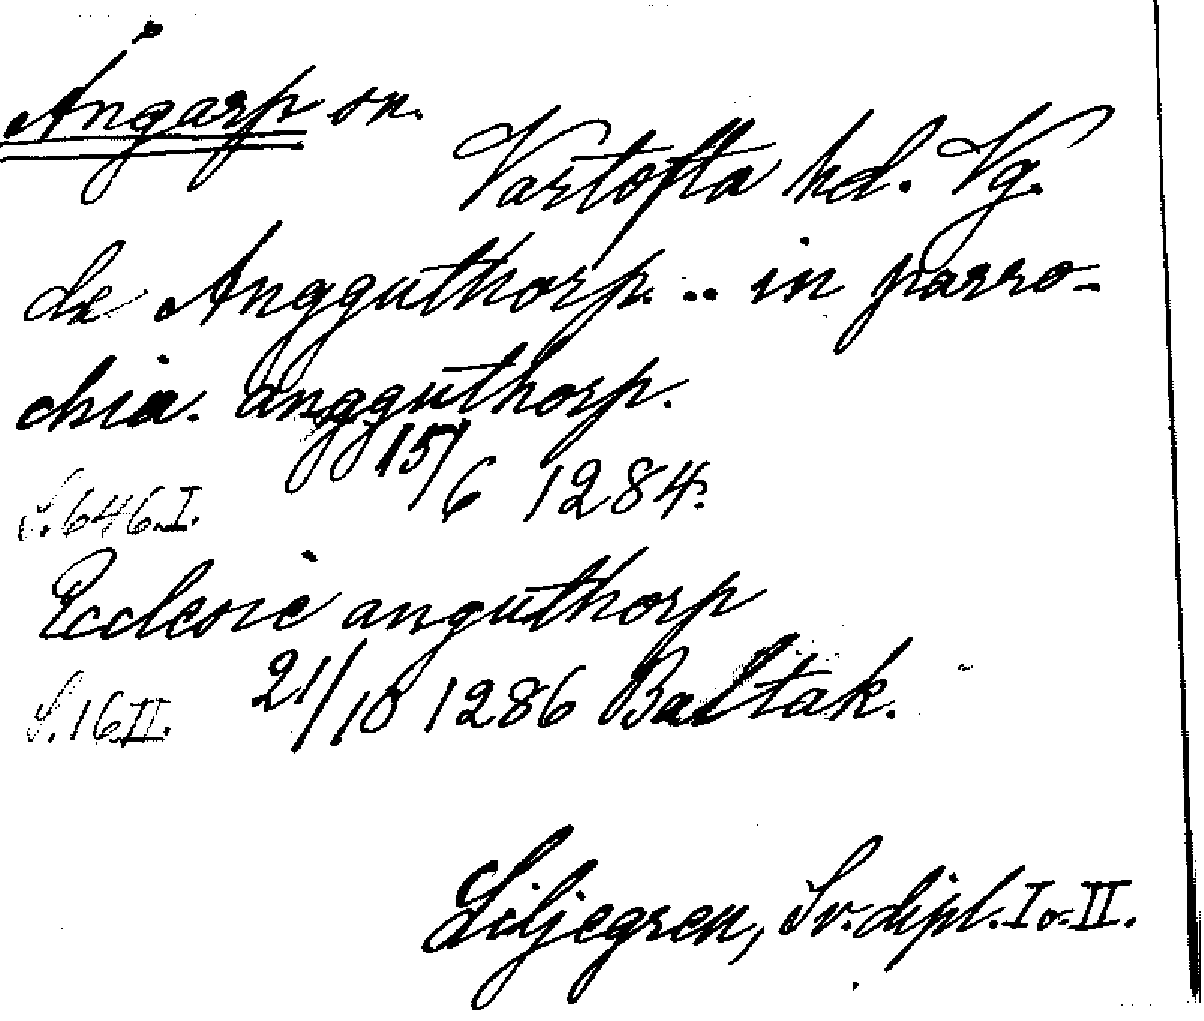 Ångarp sn.
Vartofta hd. Vg.
de Angguthorp. .. in parro-
chia. angguthorp.
S. 646. I. 15/6 1284.
Ecclesie anguthorp
S. 16 II. 21/10 1286 Baltak.
Liljegren, Sv. dipl. I o. II.